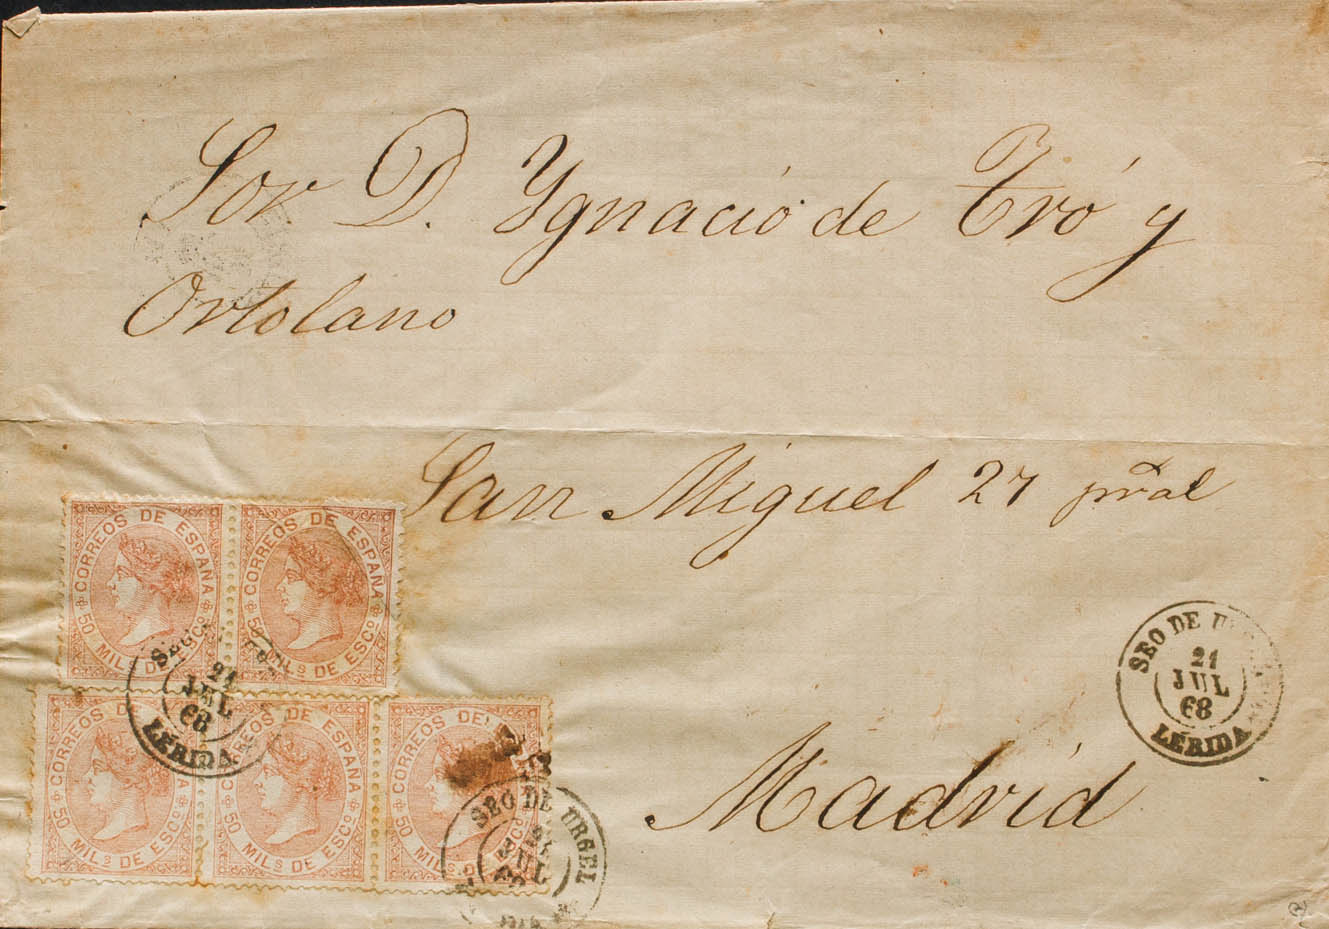 Sor D. Ygnació de Tró y
Ortolano
San Miguel 27 pral
CORREOS DE ESPAÑA
50 MILS DE ESCO
CORREOS DE ESPAÑA
50 MILS DE ESCO
SEO DE
21
JUL
68
LÉRIDA
SEO DE
21
JUL
68
LÉRIDA
Madrid
CORREOS DE
50 MILS DE ESCO
CORREOS DE ESPAÑA
50 MILS DE ESCO
CORREOS DE
50 MILS D ESCO
SEO DE URGEL
21
JUL
68